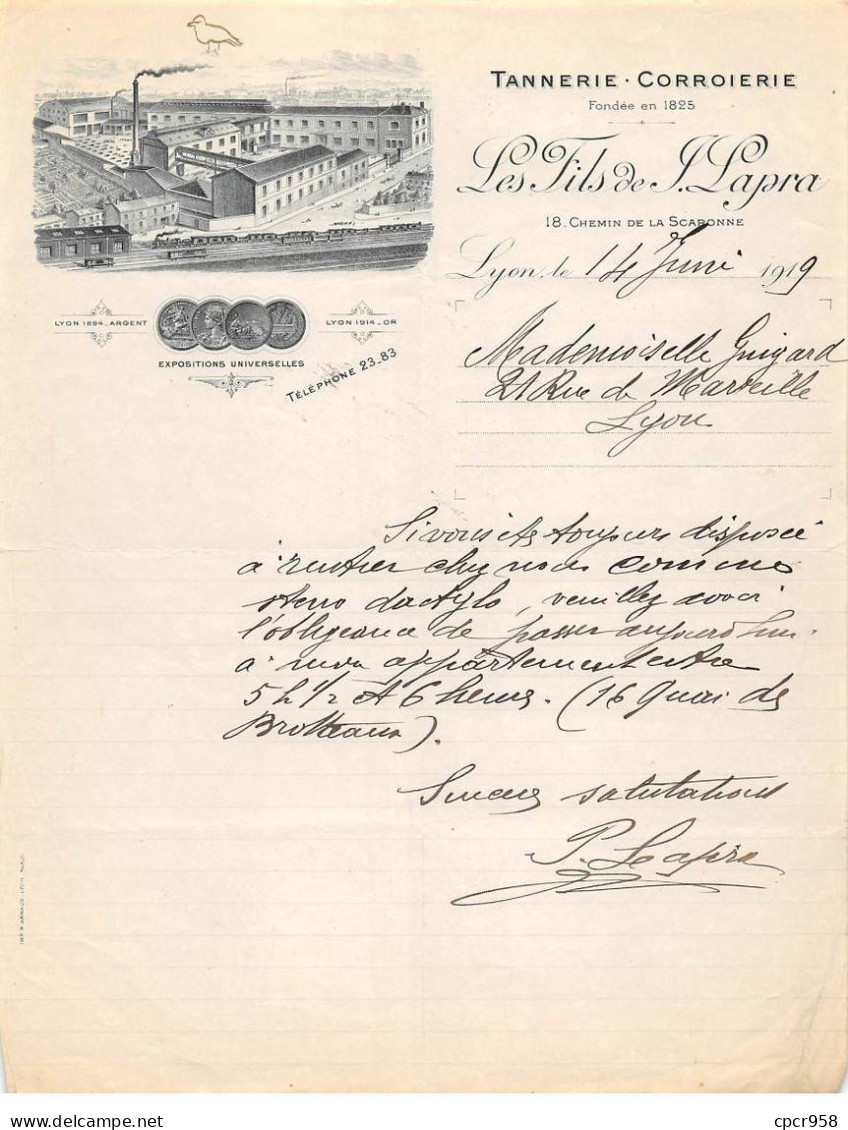 TANNERIE · CORROIERIE
Fondée en 1825
Les Fils de J. Lapra
18. CHEMIN DE LA SCARONNE
Lyon, le 14 Juin 1919
LYON 1894_ARGENT
LYON 1914_OR
EXPOSITIONS UNIVERSELLES
TÉLÉPHONE 23_83
Mademoiselle Guigard
21 Rue de Marseille
Lyon
Si vous êtes toujours disposée
à rentrer chez nous comme
steno dactylo, veuillez avoir
l'obligeance de passer aujourd'hui
à mon appartement entre
5 h 1/2 et 6 heures. (16 Quai des
Brotteaux).
Sinceres salutations
P. Lapra
cpcr958